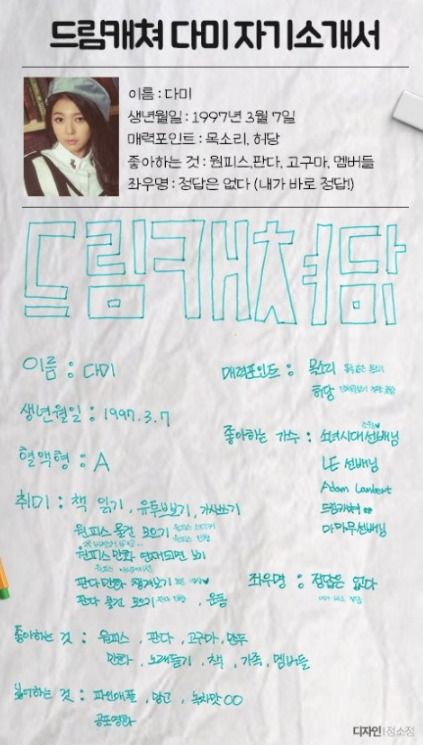 드림캐쳐 다미 자기소개서
이름 : 다미
생년월일 : 1997년 3월 7일
매력포인트 : 목소리, 허당
좋아하는 것 : 원피스, 판다, 고구마, 멤버들
좌우명 : 정답은 없다 (내가 바로 정답!)
드림캐쳐 다미
이름 : 다미
매력포인트 : 목소리
허당
생년월일 : 1997.3.7
좋아하는 가수 : 소녀시대 선배님
혈액형 : A
LE 선배님
Adam Lambert
취미 : 책 읽기, 유투브보기, 가사쓰기
드림캐쳐
마마무선배님
원피스 물건 모으기
원피스 만화 연재되면 보기
판다 만화 챙겨보기
좌우명 : 정답은 없다
판다 물건 모으기, 운동
좋아하는 것 : 원피스, 판다, 고구마, 만두
만화, 노래듣기, 책, 가족, 멤버들
싫어하는 것 : 파인애플, 망고, 녹차맛 OO
공포영화
디자인 정소정